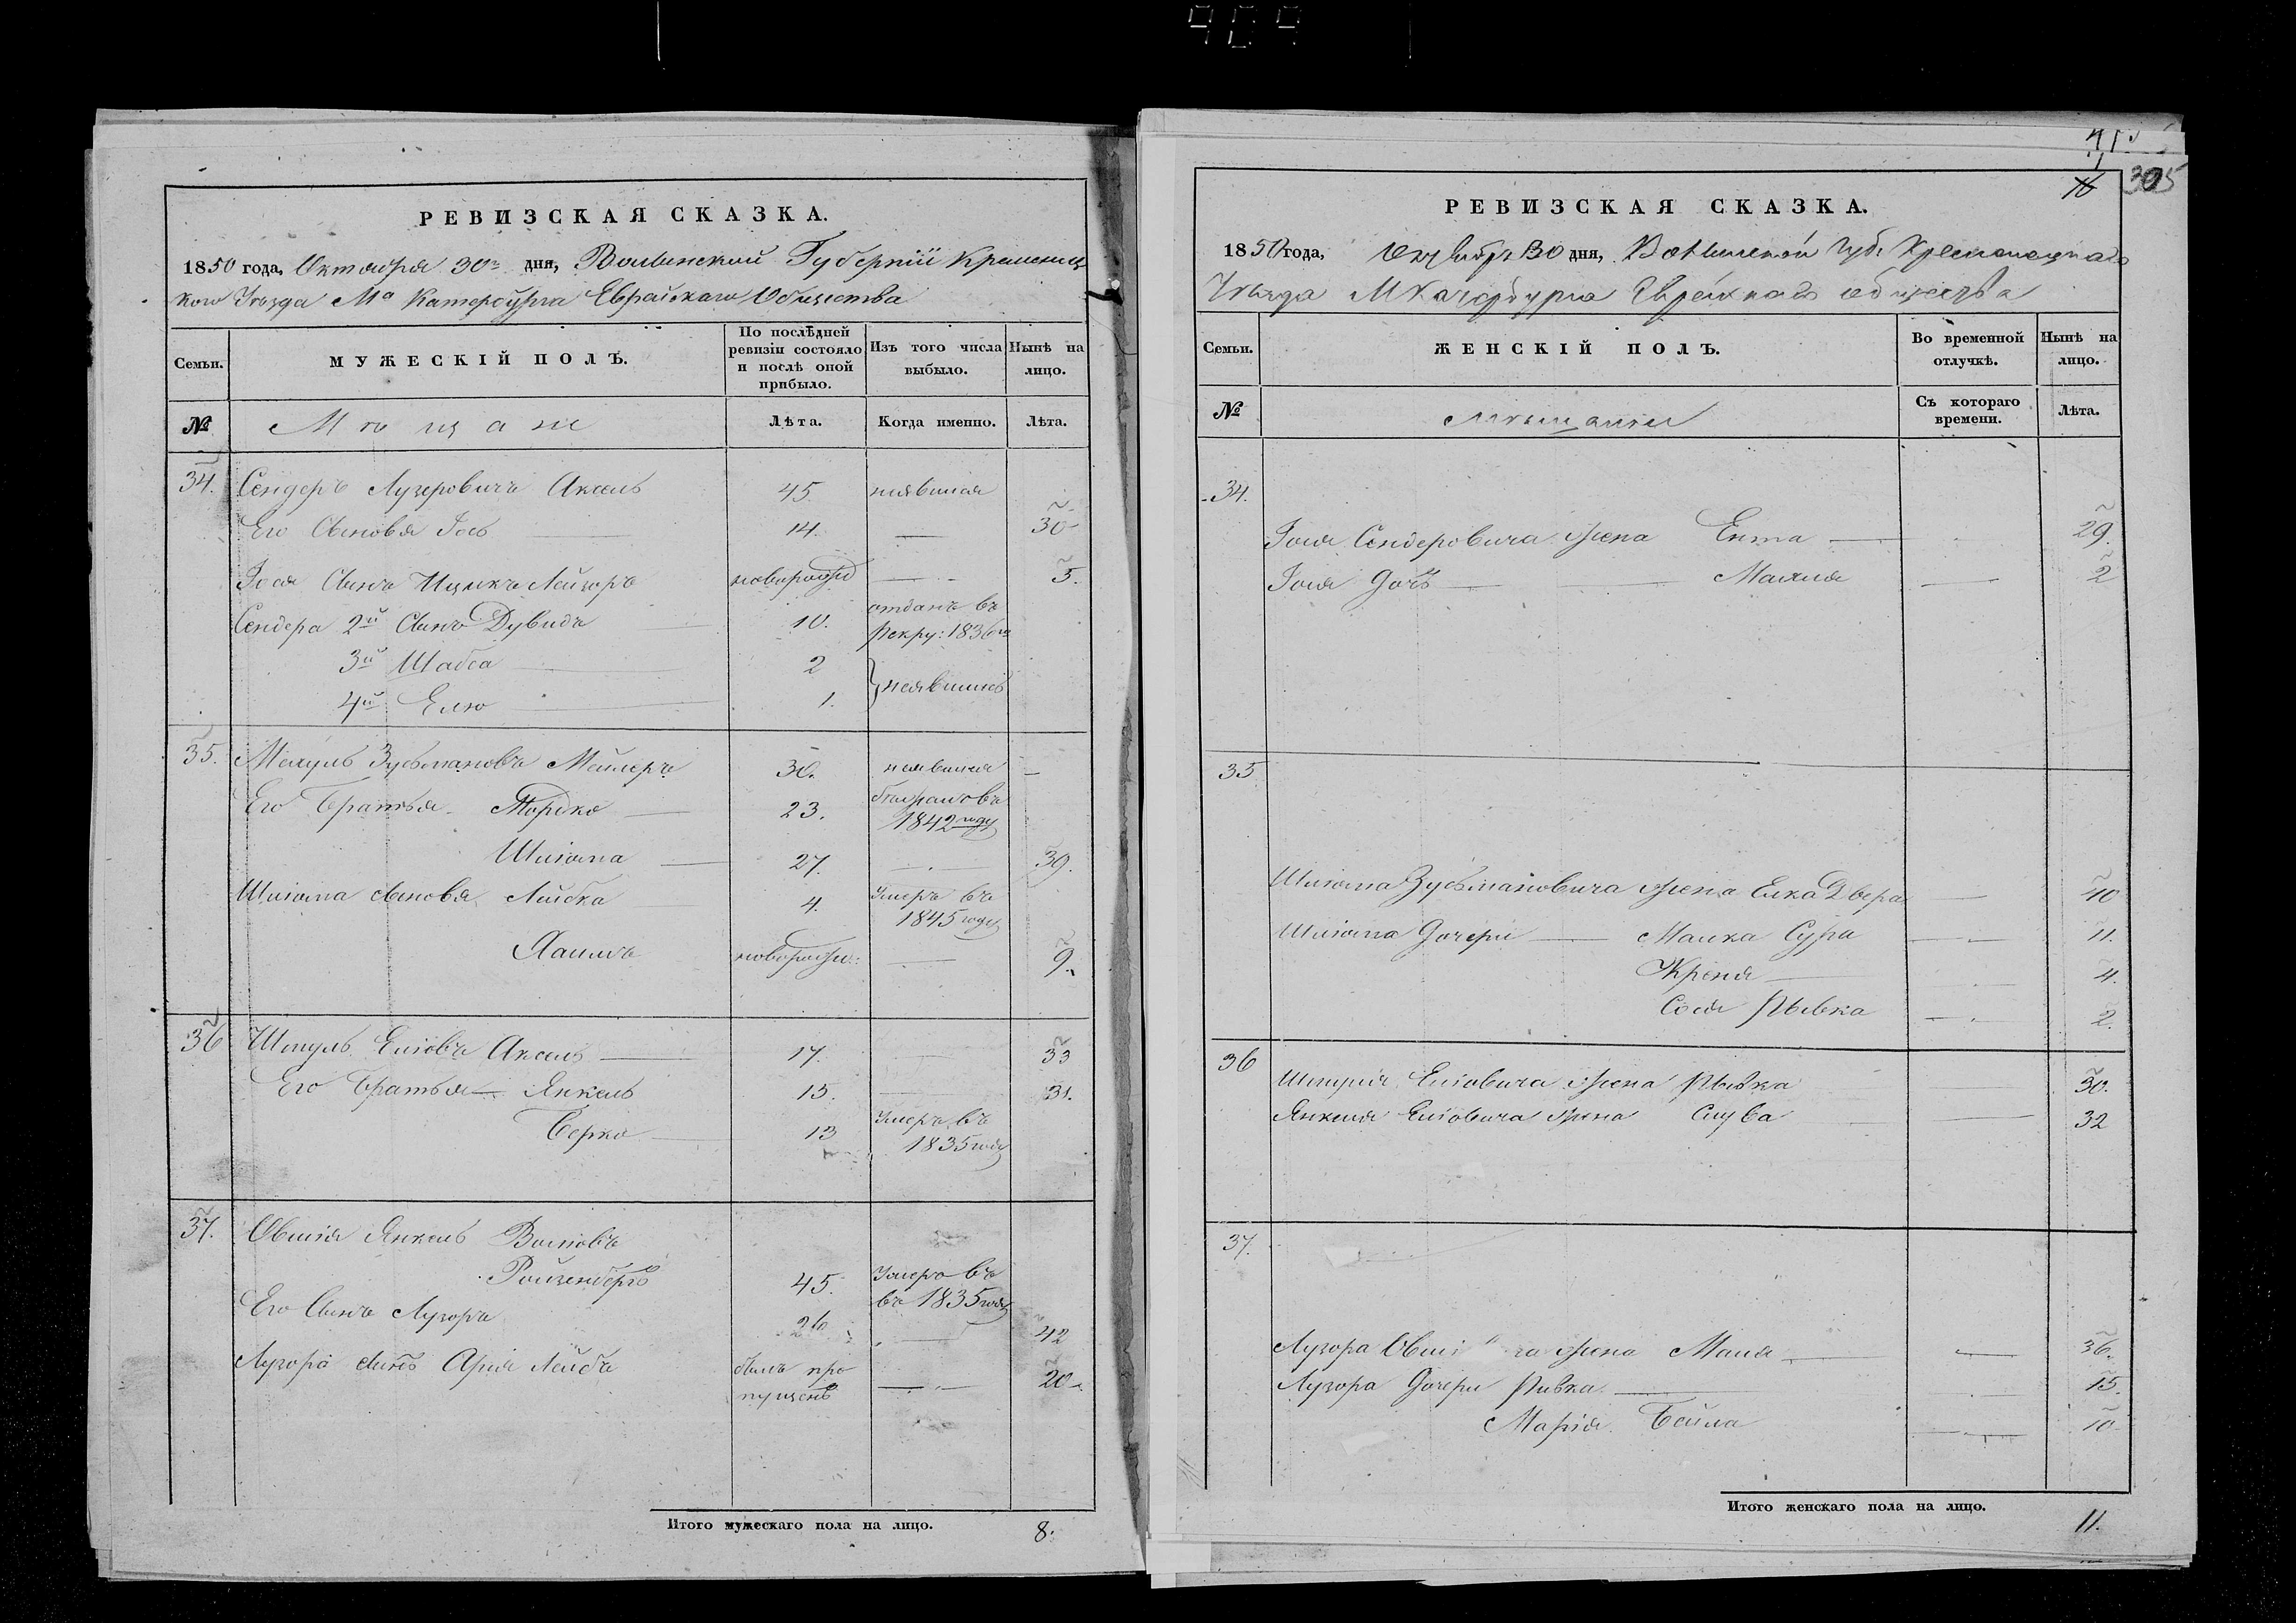 409
РЕВИЗСКАЯ СКАЗКА.
1850 года, Октября 30го дня, Волынской Губерніи Кременец
кого Уѣзда Ма Катербурга Еврейскаго Общества
Семьи.
МУЖЕСКІЙ ПОЛЪ.
По послѣдней ревизіи состояло и послѣ оной прибыло.
Изъ того числа выбыло.
Нынѣ на лицо.
№
Мѣщане
Лѣта.
Когда именно.
Лѣта.
34. Сендеръ Лузеровичъ Аксель 45 неявился
Его Сыновья Іось 14. — 30
Іося Сынъ Ицыкъ Лейзоръ новорожд — 5.
Сендера 2й Сынъ Дувидъ 10. отданъ въ
Рекру: 1836го
3й Шабса 2
4й Елю 1. } неявились
35. Мехуль Зусьмановъ Мейлеръ 30. неявился —
Его Братья Мордко — 23. въ
1842 году
Шліома — 27. — 39.
Шліома сыновья Лейбка 4. Умеръ въ
1845 году
Хаимъ новорожд: — 9.
36 Шмуль Еліовъ Аксель — 17. 33
Его Братья — Янкель 15. 31.
Берко — 13 Умеръ въ
1835 году
37. Овшія Янкель Волковъ
Ройзенбергъ 45. Умеръ въ
въ 1835 году
Его Сынъ Лузоръ 26 — 42
Лузора сынъ Арія Лейбъ былъ про
пущенъ — 20
Итого мужескаго пола на лицо. 8.
305
16
РЕВИЗСКАЯ СКАЗКА.
1850 года, Октября 30 дня, Волынской Губ. Кременецкаго
Уѣзда М Катербурга Еврейскаго общества
Семьи.
ЖЕНСКІЙ ПОЛЪ.
Во временной отлучкѣ.
Нынѣ на лицо.
№
Мѣщанки
Съ котораго времени.
Лѣта.
34.
Іося Сендеровича жена Ента — 29.
Іося дочь — Малия — 2
35
Шліома Зусьмановича жена Елка Двера — 40
Шліома дочери — Малка Сура — 11.
Креня — 4.
Сося Рывка — 2.
36
Шмуля Еліовича жена Рывка 30.
Янкеля Еліовича жена Слува — 32
37.
Лузора жена Маля — — 36.
Лузора дочери Ривка — 15.
Марія Бейла — 10
Итого женскаго пола на лицо. 11.